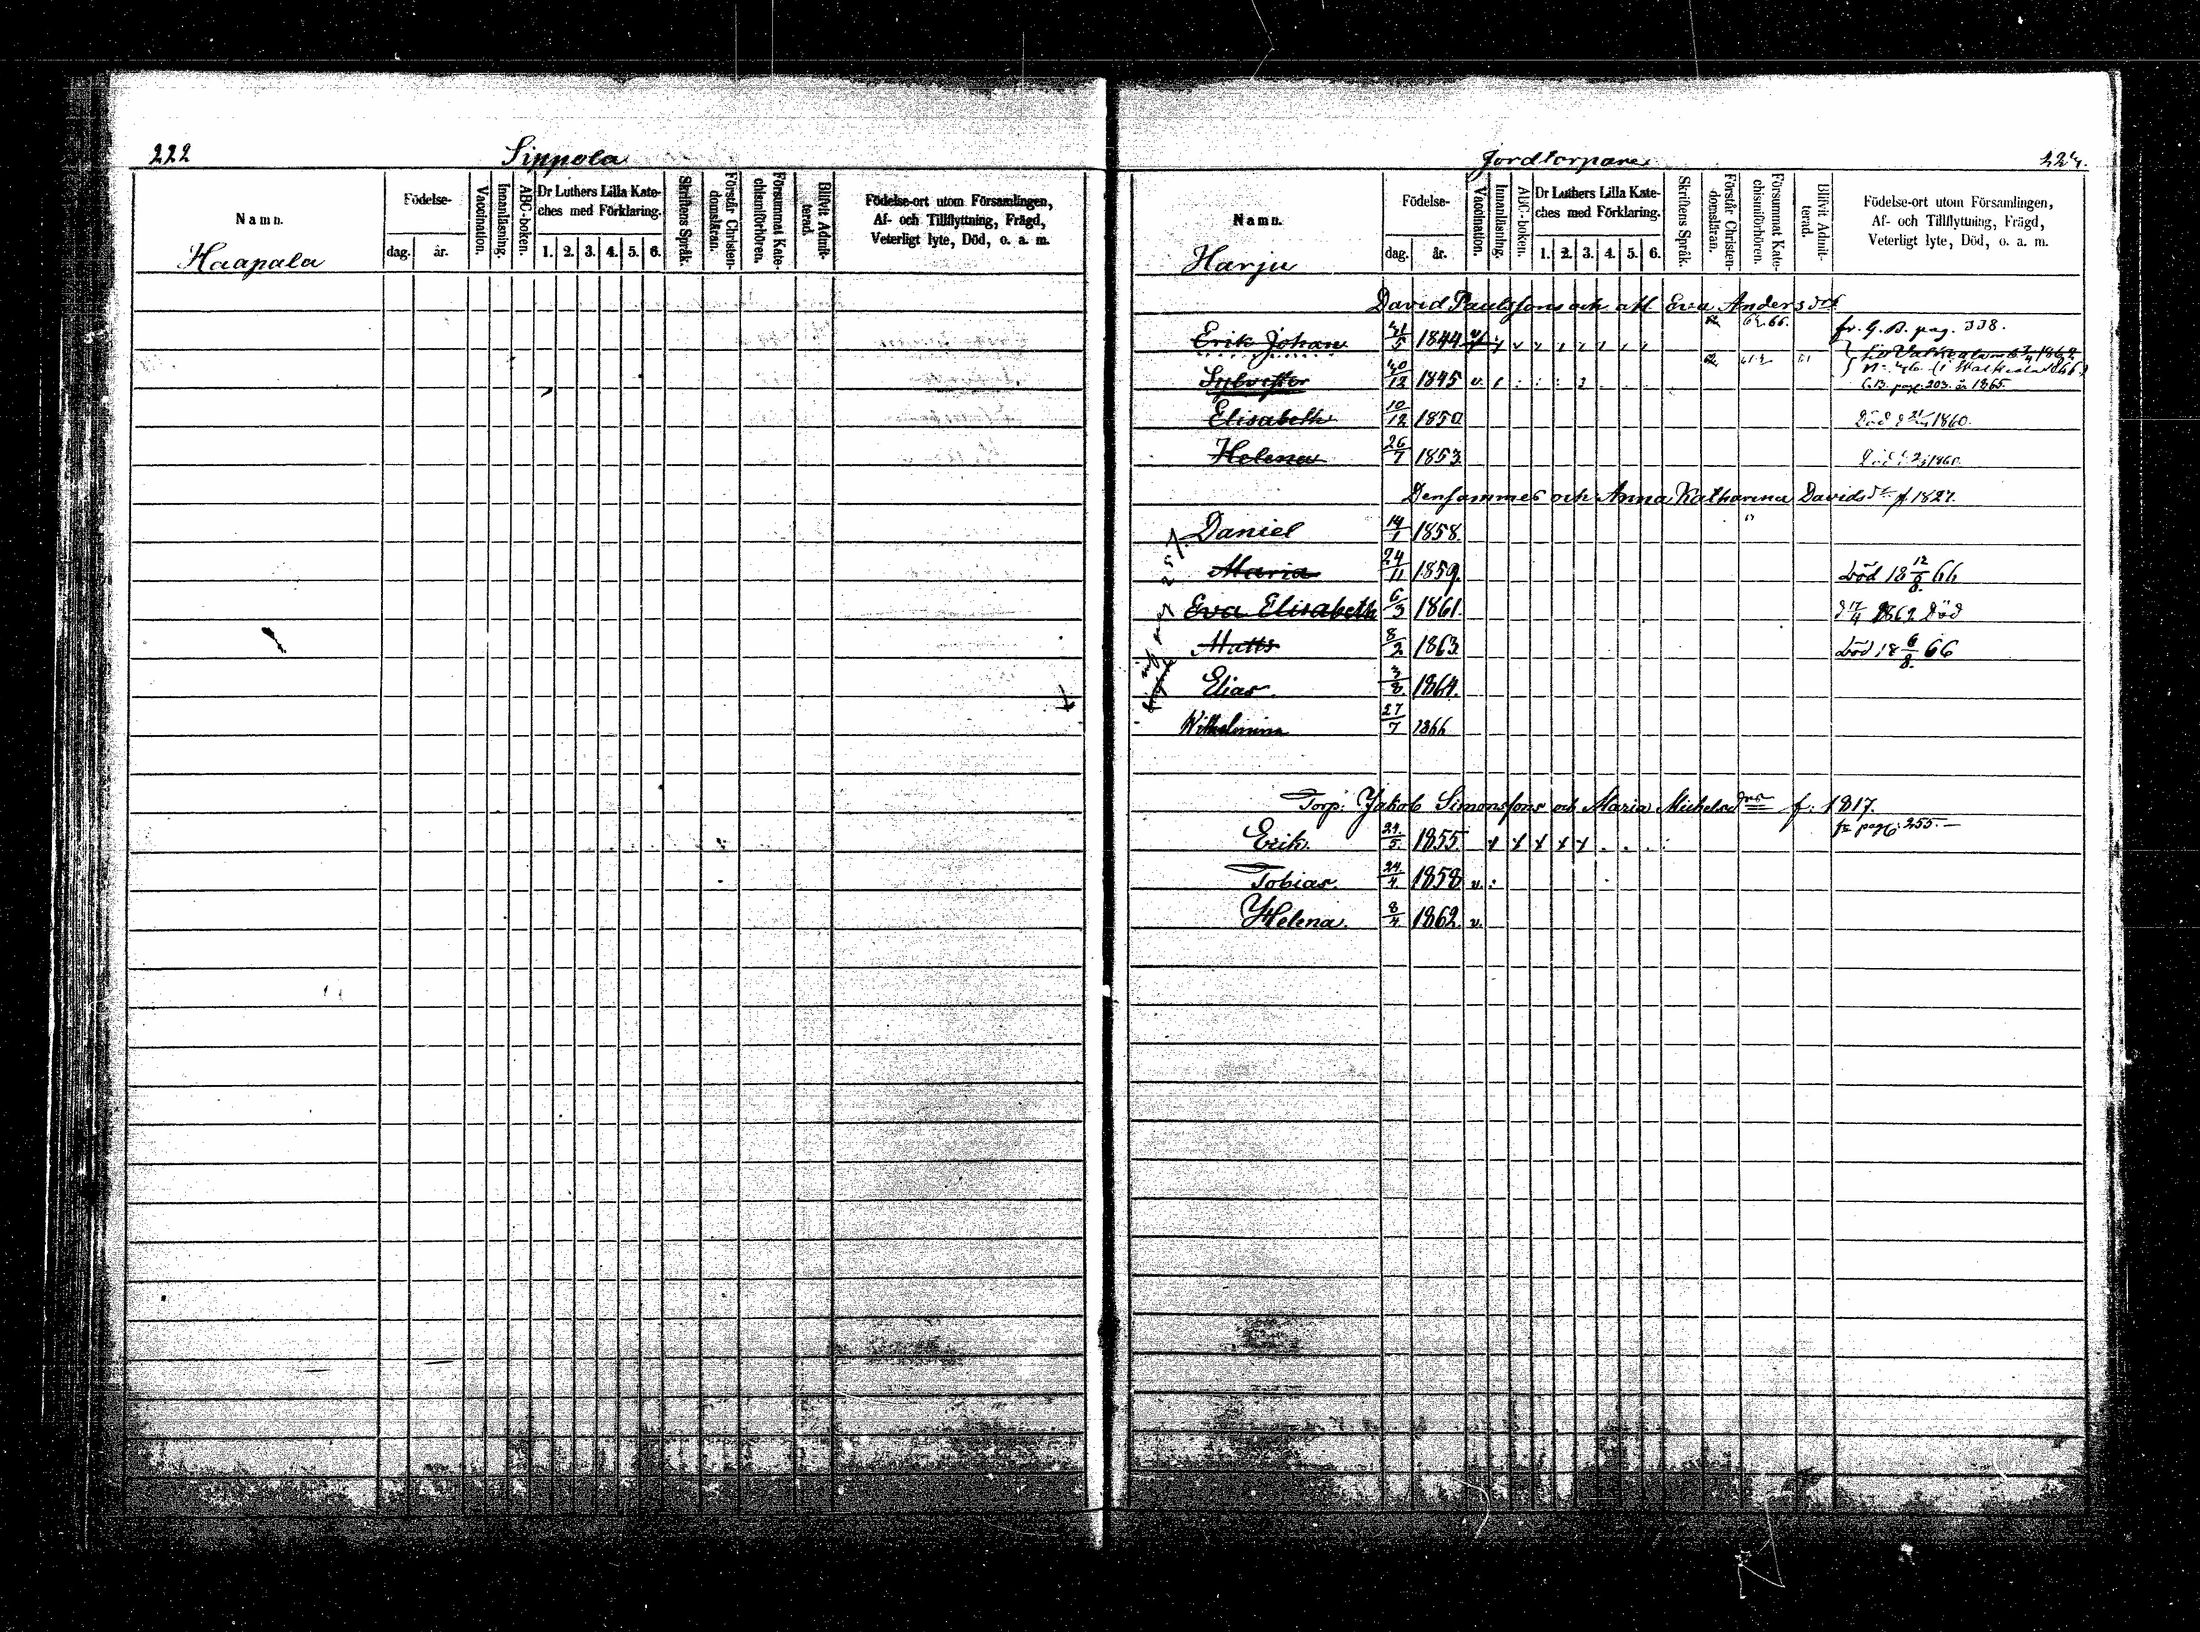 222
Sippola
Namn.
Födelse-
dag.
år.
Vaccination.
Innanläsning.
ABC-boken.
Dr Luthers Lilla Kate-
ches med Förklaring.
1. 2. 3. 4. 5. 6.
Skriftens Språk.
Förstår Christen-
domsläran.
Försummat Kate-
chismiförhören.
Blifvit Admit-
terad.
Födelse-ort utom Församlingen,
Af- och Tillflyttning, Frägd,
Veterligt lyte, Död, o. a. m.
Haapala
Jordtorpare
Namn.
Födelse-
dag.
år.
Vaccination.
Innanläsning.
ABC-boken.
Dr Luthers Lilla Kate-
ches med Förklaring.
1. 2. 3. 4. 5. 6.
Skriftens Språk.
Förstår Christen-
domsläran.
Försummat Kate-
chismiförhören.
Blifvit Admit-
terad.
Födelse-ort utom Församlingen,
Af- och Tillflyttning, Frägd,
Veterligt lyte, Död, o. a. m.
Harju
David Paulssons och afl. Eva Andersdr
Erik Johan 1844 fr. G. B. pag. 338.
Sylvester 1845 v.
C.B. pag: 203. år 1865.
Elisabeth 10/12 1850 Död 1860.
Helena 26/7 1853 1860.
Densammes och Anna Katharina Davidsdr f. 1827.
Daniel 14/1 1858.
Maria 24/11 1859. Död 18 12/8 66
Eva Elisabeth 6/3 1861. 1862 Död
Matts 8/2 1863 Död 18 6/8 66
Elias. 3/8 1864.
Wilhelmina 27/7 1866
Torp: Jakob Simonssons och Maria Michelsdr f: 1817.
Erik. 1855. x x x x x fr pag: 255.
Tobias. 24/4 1858 v.
Helena. 8/4 1862. v.